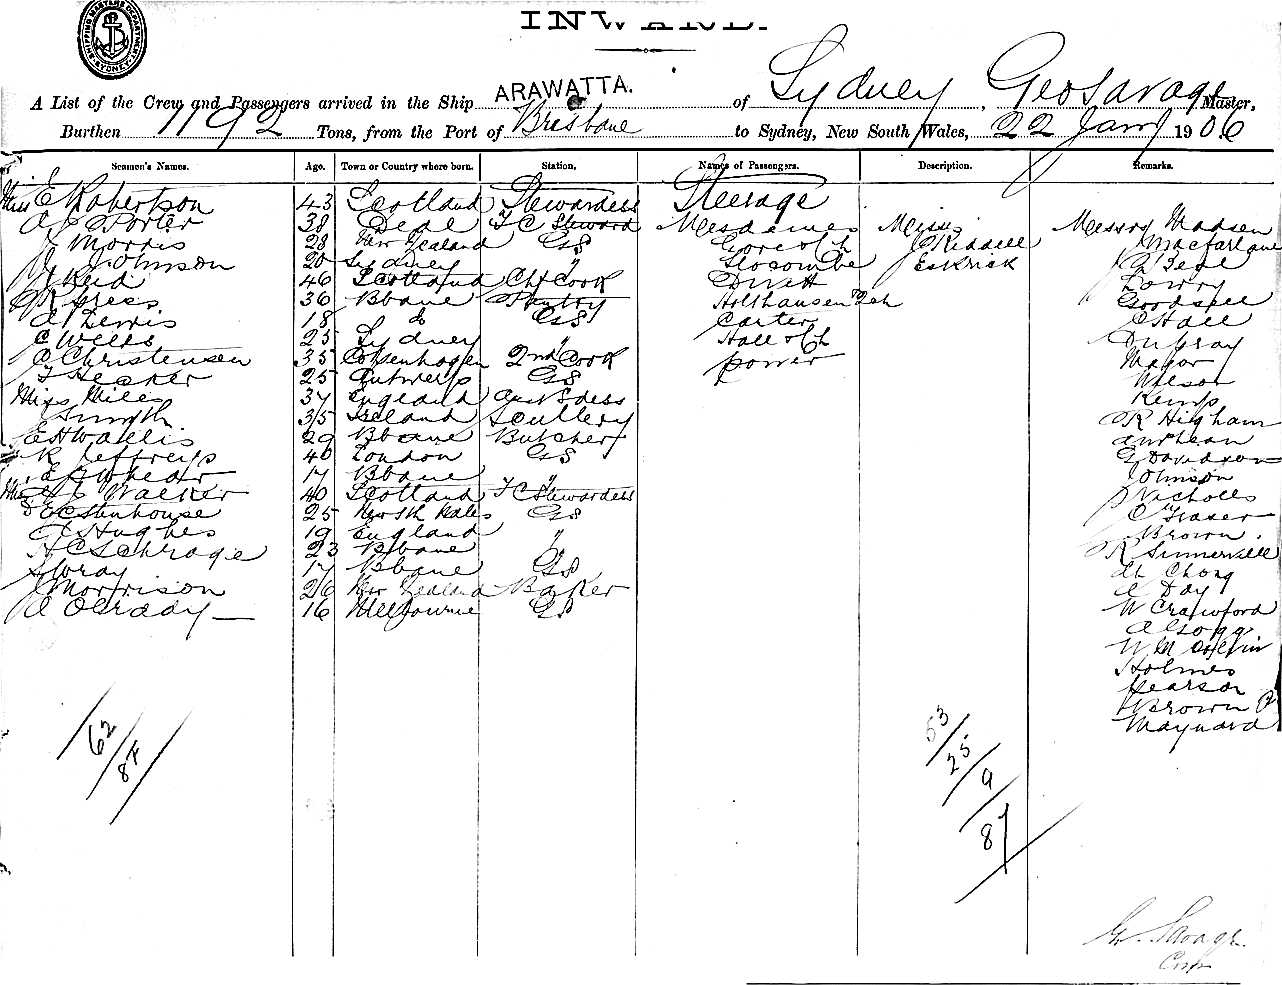 INWARD.
SHIPPING MASTERS DEPARTMENT SYDNEY
A List of the Crew and Passengers arrived in the Ship ARAWATTA. of Sydney, Geo Savage Master,
Burthen 1192 Tons, from the Port of Brisbane to Sydney, New South Wales, 22 Jany 1906
Seamen's Names. Age. Town or Country where born. Station. Names of Passengers. Description. Remarks.
Miss E Robertson 43 Scotland Stewardess Steerage
Porter 38 Deal F C Steward Mesdames Misses Messrs Madsen
J Morris 28 New Zealand GS Gore & Ch J Riddell Macfarlane
Johnson 20 Sydney " Slocombe Eskrick
J Reid 46 Scotland Chf Cook Lowry
36 Bbane Pantry Holthausen 2ch Goodsell
A Lewis 18 do GS Carter C Hall
C Wells 25 Sydney " Hall & Ch
C Christensen 35 Copenhagen 2nd Cook Power Major
25 Antwerp GS Wilson
Miss Miles 37 England Kemp
Smyth 35 Ireland Scullery R Higham
E H Wallis 29 Bbane Butcher
R Jeffreys 40 London GS G Davidson
17 Bbane " Johnson
Walker 40 Scotland F C Stewardess Nicholls
E C Stenhouse 25 Nrsth Wales GS C Fraser
Hughes 19 England " Brown
H C Schrage 23 Bbane " R Simmerville
S Wray 17 Bbane GS Ah Chong
J Morrison 26 New Zealand Baker C Day
O'Grady 16 Melbourne GS W Crawford
W M Coffin
Holmes
Pearson
Brown
Maynard
62
84
53
25
9
87
G. Savage